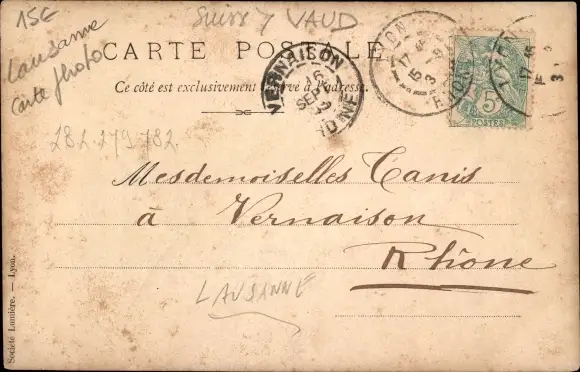 15€
Suisse VAUD
Lausanne
carte photo
CARTE POSTALE
Ce côté est exclusivement réservé à l'adresse.
VERNAISON
16
SEPT
RHONE
LYON
RHONE
5c
POSTES
282 279 782
Mesdemoiselles Canis
à Vernaison
Rhône
LAUSANNE
Société Lumière. — Lyon.